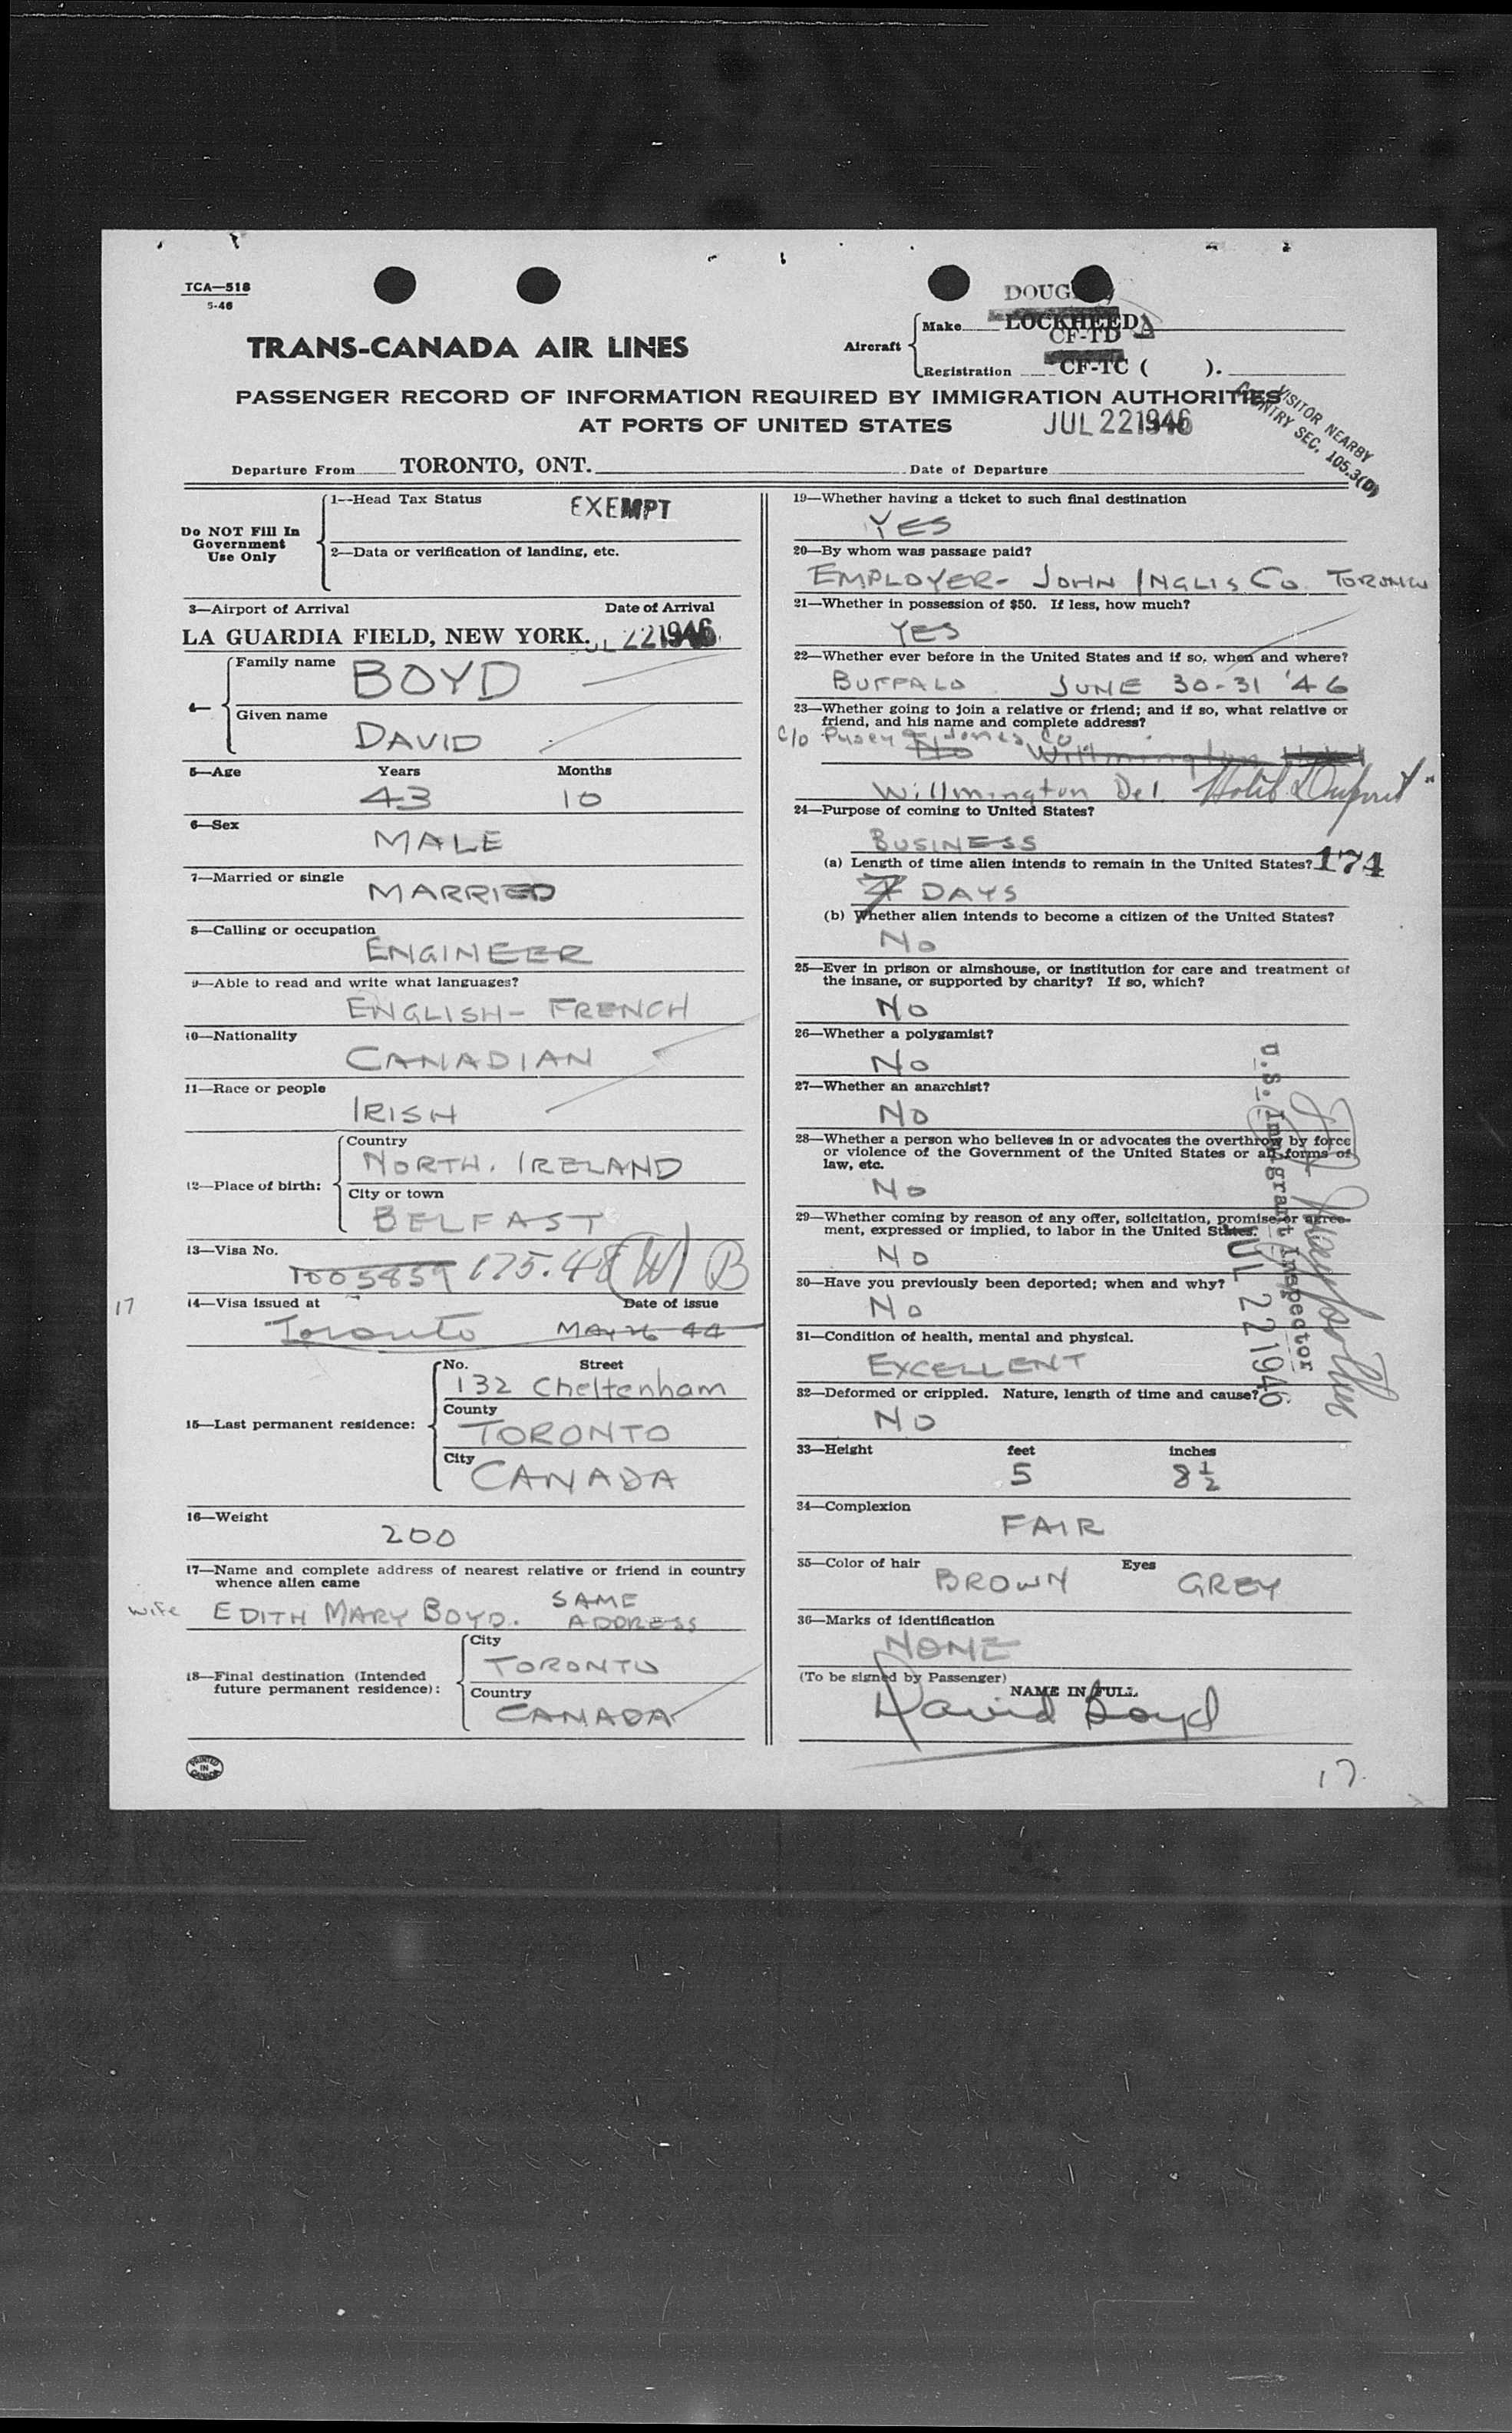 TCA—518
5-46
TRANS-CANADA AIR LINES
DOUG
Aircraft
Make LOCKHEED
CF-TD
Registration CF-TC ( ).
PASSENGER RECORD OF INFORMATION REQUIRED BY IMMIGRATION AUTHORITIES
AT PORTS OF UNITED STATES
JUL 22 1946
VISITOR NEARBY
COUNTRY SEC. 105.3(D)
Departure From TORONTO, ONT. Date of Departure
Do NOT Fill In
Government
Use Only
1—Head Tax Status EXEMPT
2—Data or verification of landing, etc.
3—Airport of Arrival Date of Arrival
LA GUARDIA FIELD, NEW YORK. JUL 22 1946
4—
Family name BOYD
Given name DAVID
5—Age Years Months
43 10
6—Sex
MALE
7—Married or single
MARRIED
8—Calling or occupation
ENGINEER
9—Able to read and write what languages?
ENGLISH - FRENCH
10—Nationality
CANADIAN
11—Race or people
IRISH
12—Place of birth:
Country
NORTH. IRELAND
City or town
BELFAST
13—Visa No.
1005859 175.48 (W) B
17
14—Visa issued at Date of issue
Toronto MAY 26 44
15—Last permanent residence:
No. Street
132 Cheltenham
County
TORONTO
City
CANADA
16—Weight
200
17—Name and complete address of nearest relative or friend in country
whence alien came
wife EDITH MARY BOYD. SAME
ADDRESS
18—Final destination (Intended
future permanent residence):
City
TORONTO
Country
CANADA
PRINTED
IN
CANADA
19—Whether having a ticket to such final destination
YES
20—By whom was passage paid?
EMPLOYER - JOHN INGLIS CO. TORONTO
21—Whether in possession of $50. If less, how much?
YES
22—Whether ever before in the United States and if so, when and where?
BUFFALO JUNE 30-31 '46
23—Whether going to join a relative or friend; and if so, what relative or
friend, and his name and complete address?
c/o Pusey & Jones Co
No Willmington Hotel
Willmington Del. Hotel Dupont"
24—Purpose of coming to United States?
BUSINESS
(a) Length of time alien intends to remain in the United States? 174
7 DAYS
(b) Whether alien intends to become a citizen of the United States?
NO
25—Ever in prison or almshouse, or institution for care and treatment of
the insane, or supported by charity? If so, which?
NO
26—Whether a polygamist?
NO
27—Whether an anarchist?
NO
28—Whether a person who believes in or advocates the overthrow by force
or violence of the Government of the United States or all forms of
law, etc.
NO
29—Whether coming by reason of any offer, solicitation, promise or agree-
ment, expressed or implied, to labor in the United States.
NO
30—Have you previously been deported; when and why?
NO
31—Condition of health, mental and physical.
EXCELLENT
32—Deformed or crippled. Nature, length of time and cause?
NO
U.S. Immigrant Inspector
JUL 22 1946
33—Height feet inches
5 8 1/2
34—Complexion
FAIR
35—Color of hair Eyes
BROWN GREY
36—Marks of identification
NONE
(To be signed by Passenger)
NAME IN FULL
David Boyd
17